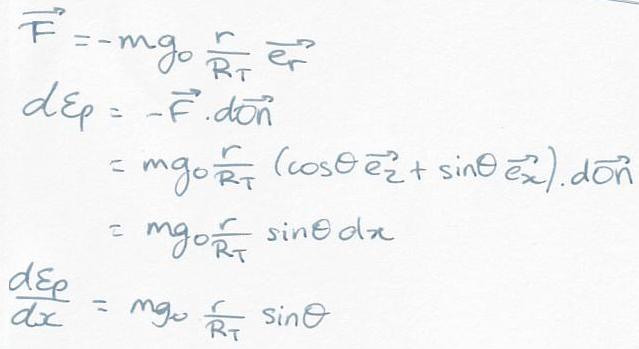 F⃗ = -mg₀ r/R_T e⃗_r
dƐp = -F⃗ . dOM⃗
= mg₀ r/R_T (cosθ e⃗_z + sinθ e⃗_x) . dOM⃗
= mg₀ r/R_T sinθ dx
dƐp/dx = mg₀ r/R_T sinθ